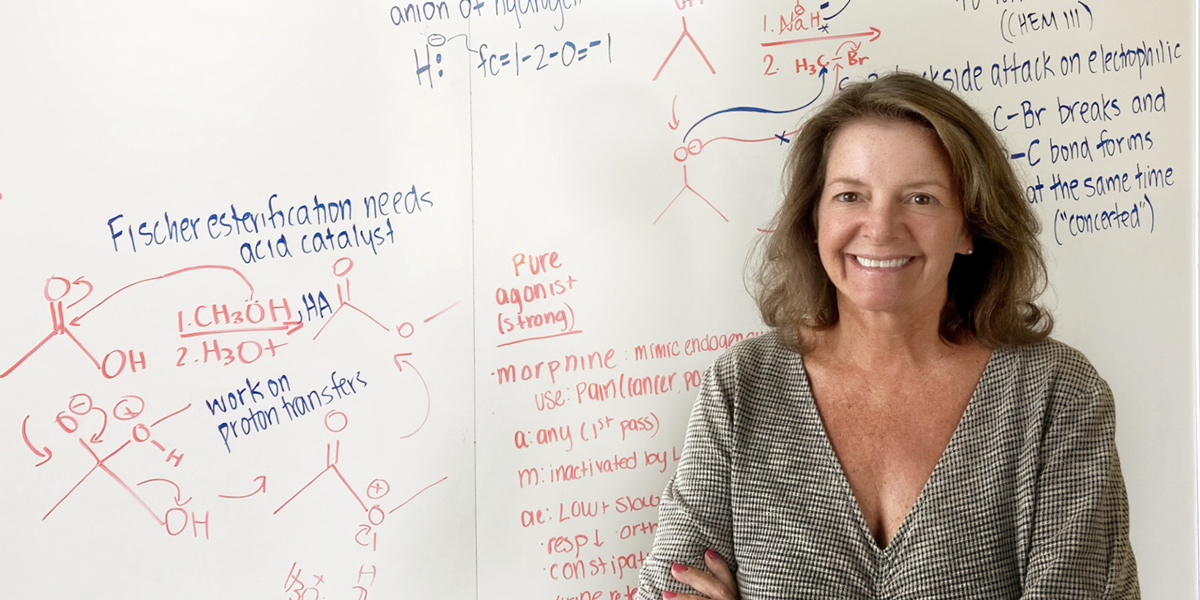 anion of hydrogen
H:
⊖
fc=1-2-0=-1
Fischer esterification needs
acid catalyst
O
1.CH3ÖH, HA
2.H3O+
OH
O
O
work on
proton transfers
O
⊖
⊕
O
H
OH
O
⊕
O
H
OH
1. NaH
2. H3C-Br
O⊖
((CHEM 111)
backside attack on electrophilic
C-Br breaks and
-C bond forms
at the same time
("concerted")
Pure
agonist
(strong)
·morphine: mimic endogen
use: Pain (cancer, po
a: any (1st pass)
m: inactivated by L
ae: LOW + Slow
·resp↓ orth
·constipat
urine rete